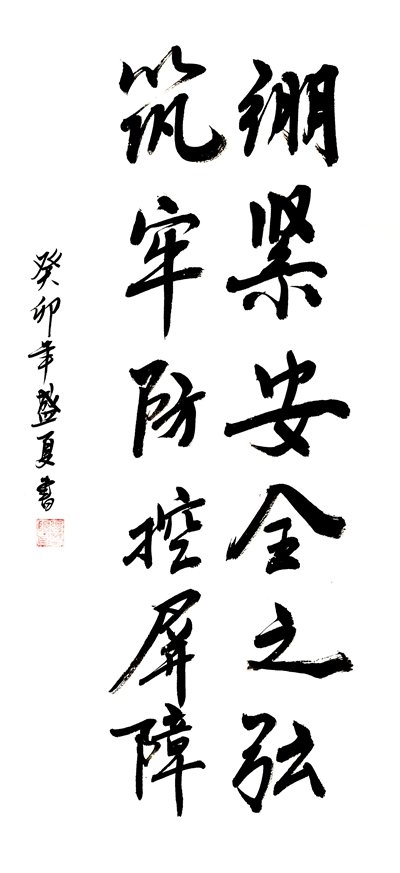 绷紧安全之弦
筑牢防控屏障
癸卯年盛夏書